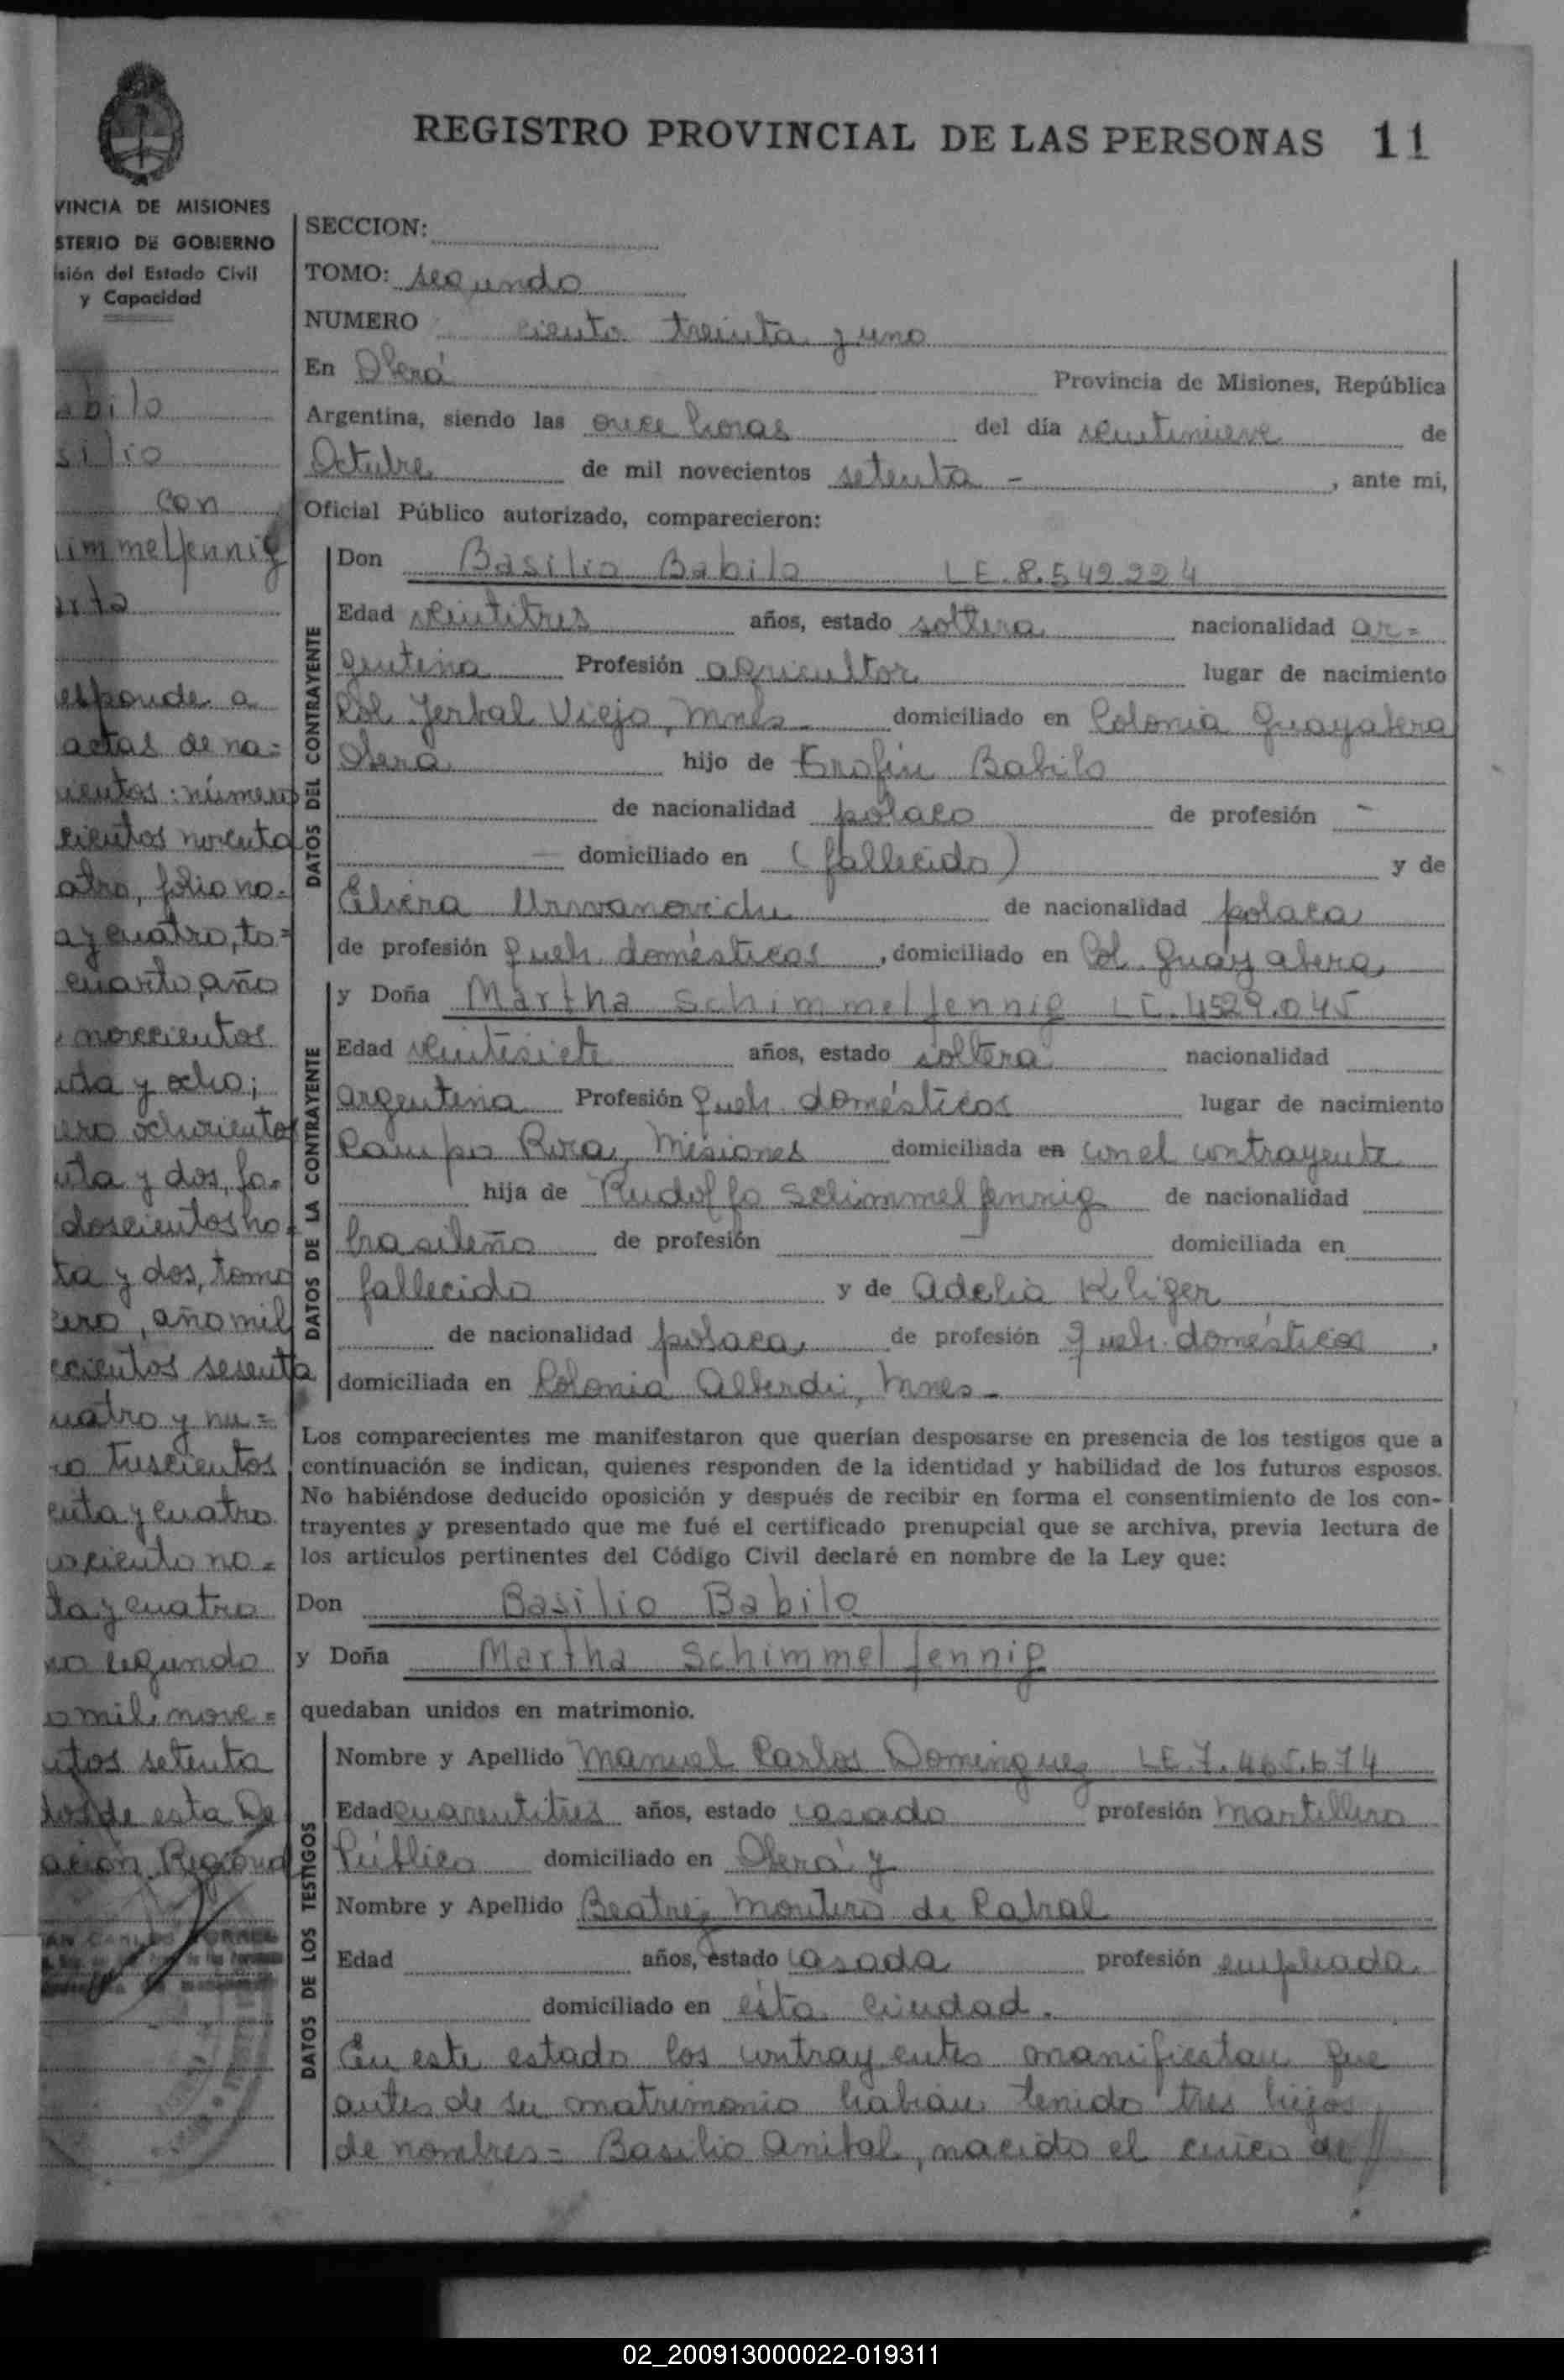 REGISTRO PROVINCIAL DE LAS PERSONAS 11
VINCIA DE MISIONES
STERIO DE GOBIERNO
isión del Estado Civil
y Capacidad
abilo
silio
con
immelfennig
arta
esponde a
actas de na=
mientos: número
cientos noventa
atro, folio no=
a y cuatro, to=
cuarto, año
novecientos
nta y ocho;
ero ochocientos
nta y dos, fo=
doscientos no
ta y dos, tomo
cero, año mil
ecientos sesenta
uatro y nu=
o trescientos
enta y cuatro
ciento no=
ta y cuatro
mo segundo
o mil nove=
ntos setenta
dos de esta De
ación Regional
SECCION:
TOMO: segundo
NUMERO ciento treinta y uno
En Oberá Provincia de Misiones, República
Argentina, siendo las once horas del día veintinueve de
Octubre de mil novecientos setenta - , ante mi,
Oficial Público autorizado, comparecieron:
DATOS DEL CONTRAYENTE
Don Basilio Babilo L E. 8.542.224
Edad veintitres años, estado soltero nacionalidad ar=
gentina Profesión agricultor lugar de nacimiento
Col. Yerbal Viejo, Mnes domiciliado en Colonia Guayabera
Oberá hijo de Trofin Babilo
de nacionalidad polaco de profesión -
domiciliado en (fallecido) y de
Elvira de nacionalidad polaca
de profesión queh. domésticos , domiciliado en Col. Guayabera
DATOS DE LA CONTRAYENTE
y Doña Martha Schimmelfennig L C. 4529.045
Edad veintisiete años, estado soltera nacionalidad
argentina Profesión queh. domésticos lugar de nacimiento
Campo Viera, Misiones domiciliada en con el contrayente
hija de Rudolfo Schimmelfennig de nacionalidad
brasileño de profesión - domiciliada en
fallecido y de Adelia Kliger
de nacionalidad polaca de profesión queh. domésticos ,
domiciliada en Colonia Alberdi, Mnes -
Los comparecientes me manifestaron que querían desposarse en presencia de los testigos que a
continuación se indican, quienes responden de la identidad y habilidad de los futuros esposos.
No habiéndose deducido oposición y después de recibir en forma el consentimiento de los con-
trayentes y presentado que me fué el certificado prenupcial que se archiva, previa lectura de
los artículos pertinentes del Código Civil declaré en nombre de la Ley que:
Don Basilio Babilo
y Doña Martha Schimmelfennig
quedaban unidos en matrimonio.
DATOS DE LOS TESTIGOS
Nombre y Apellido Manuel Carlos Dominguez L E. 7.465.674
Edad cuarentitres años, estado casado profesión Martillero
Público domiciliado en Oberá y
Nombre y Apellido Beatriz Montero de Cabral
Edad años, estado casada profesión empleada
domiciliado en esta ciudad.
En este estado los contrayentes manifiestan que
antes de su matrimonio habian tenido tres hijos
de nombres= Basilio Anibal, nacido el cinco de //
02_200913000022-019311